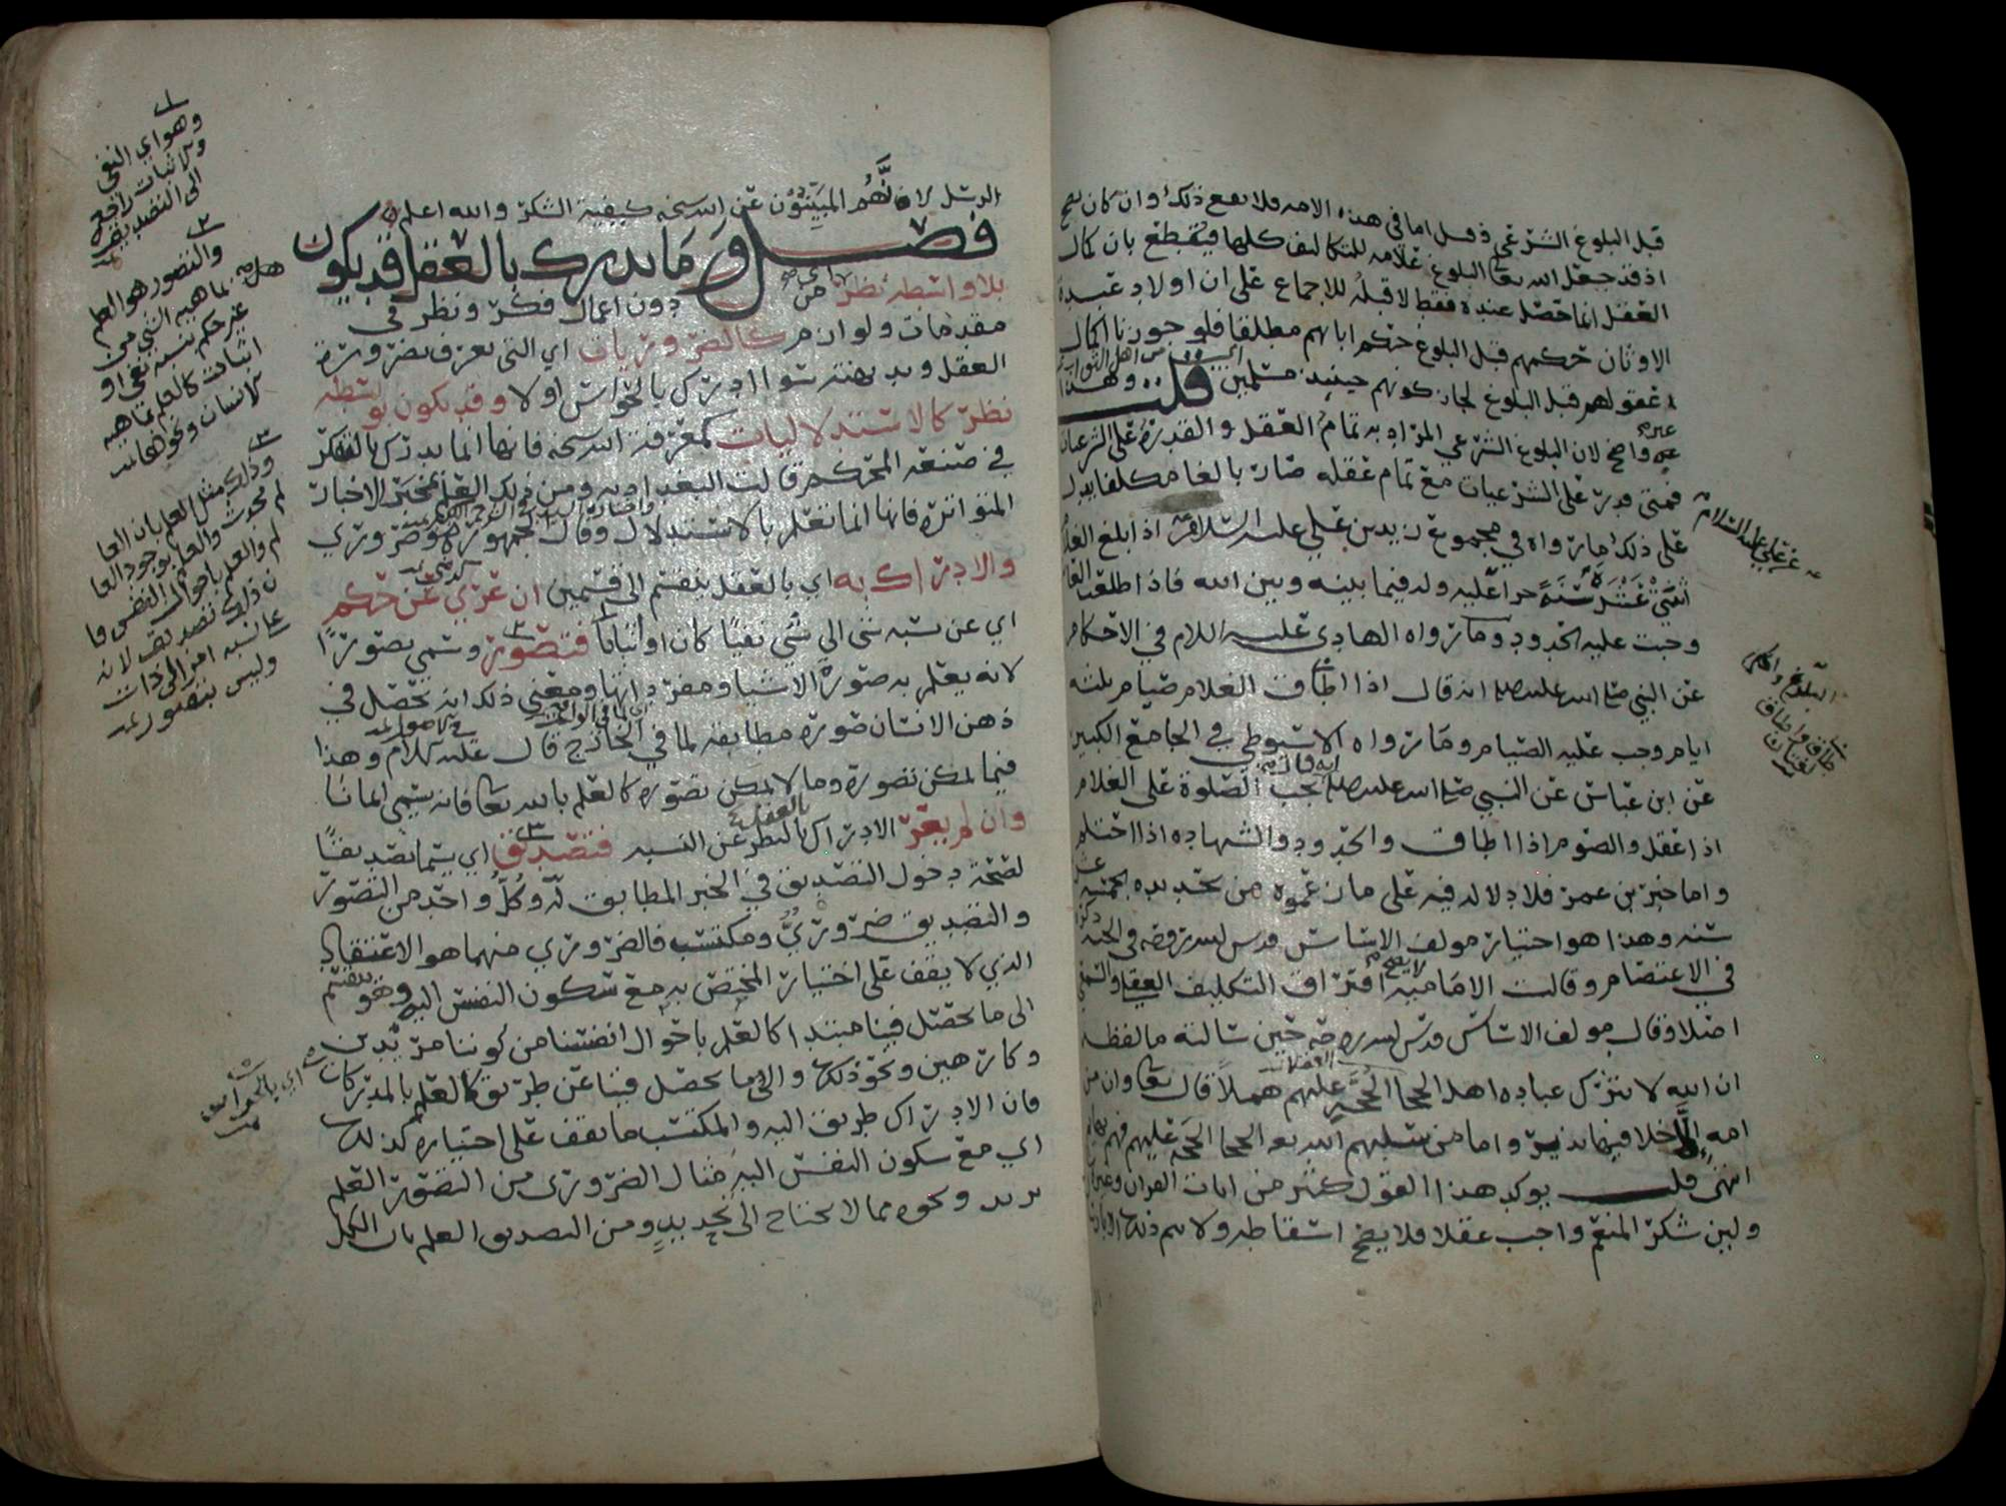 قبل البلوغ الشرعي وقيل اما في هذه الامه فلا يقع ذلك وان كان يصح
اذ قد جعل الله تعا البلوغ علامه للتكاليف كلها فيقطع بان كمال
العقل انما حصل عنده فقط لا قبله للاجماع على ان اولاد عبدة
الاوثان حكمهم قبل البلوغ حكم ابائهم مطلقا فلو جوزنا اكمال
عقولهم قبل البلوغ لجاز كونهم حينئذ مسلمين من اهل الثواب قلت وهذا
غير واضح لان البلوغ الشرعي المراد به تمام العقل والقدرة على الشرعيات
فمتى قدر على الشرعيات مع تمام عقله صار بالغا مكلفا يدل
على ذلك ما رواه في مجموع زيد بن علي عليه السلام اذا بلغ الغلام
اثنتي عشرة سنة جرا عليه وله فيما بينه وبين الله فاذا اطلعت العانة
وجبت عليه الحدود وما رواه الهادي عليه السلام في الاحكام
عن النبي صلى الله عليه وسلم انه قال اذا اطاق الغلام صيام ثلثه
ايام وجب عليه الصيام وما رواه الاسيوطي في الجامع الكبير
عن ابن عباس عن النبي صلى الله عليه وسلم انه قال تجب الصلوة على الغلام
اذا عقل والصوم اذا اطاق والحدود والشهاده اذا احتلم
واما خبر بن عمر فلا دلاله فيه على ما زعموه من تحديده بخمس عشر
سنه وهذا هو اختيار مولف الاساس قدس الله روحه في الجنه ذكره
في الاعتصام وقالت الاماميه لا يصح افتراق التكليف العقلي والسمعي
اصلا وقال مولف الاساس قدس الله روحه حين سالته ما لفظه
ان الله لا يترك عباده اهل الحجا الحجج عليهم هملا قال تعا وان من
امه الا خلا فيها نذير واما من سلبهم الله تعا الحجا الحجه عليهم فهم
انتهى قلت يوكد هذا القول كثير من ايات القران وغيرها
ولئن شكر المنعم واجب عقلا فلا يصح اسقاطه ولا يتم ذلك الا بارسال
عن علي عليه السلام
الرسل لانهم المبينون عن الله سبحانه كيفية الشكر والله اعلم
فصل وما يدرك بالعقل قد يكون
بلا واسطه نظر اي من دون اعمال فكر ونظر في
مقدمات ولوازم كالضروريات اي التي تعرف بضرورة
العقل وبديهته سوا ادرك بالحواس اولا وقد يكون بواسطه
نظر كالاستدلاليات كمعرفة الله سبحانه فانها انما تدرك بالتفكر
في صنعه المحكم قالت البغداديه ومن ذلك العلم بمخبر الاخبار
المتواترة فانها انما تعلم بالاستدلال وقال الجمهور هو ضروري
والادراك به اي بالعقل ينقسم الى قسمين ان عري عن حكم
اي عن نسبه شي الى شي نفيا كان او اثباتا فتصور وسمي تصورا
لانه يعلم به صورة الاشيا ومفرداتها ومعنى ذلك انه يحصل في
ذهن الانسان صورة مطابقه لما في الخارج قال عليه السلام وهذا
فيما يمكن تصوره وما لا يمكن تصوره كالعلم بالله تعا فانه يسمى ايمانا
وان لم يعر الادراك بالنظر عن النسبه فتصديق اي يسما تصديقا
لصحة دخول التصديق في الخبر المطابق له وكل واحد من التصور
والتصديق ضروري ومكتسب فالضروري منهما هو الاعتقاد
الذي لا يقف على اختيار المختص به مع سكون النفس اليه وهو ينقسم
الى ما يحصل فينا مبتدا كالعلم باحوال انفسنا من كوننا مريدين
وكارهين ونحو ذلك والى ما يحصل فينا عن طريق كالعلم بالمدركات
فان الادراك طريق اليه والمكتسب ما يقف على اختياره كذلك
اي مع سكون النفس اليه مثال الضروري من التصور العلم
بزيد ونحوه مما لا يحتاج الى تحديد ومن التصديق العلم بان الكل
١
وهو اي النفي
والاثبات راجع
الى التصديق
٢
والتصور هو العلم
بماهيه الشي من
غير حكم بنسبه نفي او
اثبات كالعلم بماهيه
الانسان ونحوها
٣
وذلك مثل العلم بان العا
لم محدث والعلم بوجود العا
لم والعلم باحوال النفس فا
ن ذلك تصديق لانه
نسبه امر الى ذات
وليس بتصور
اي بالحواس